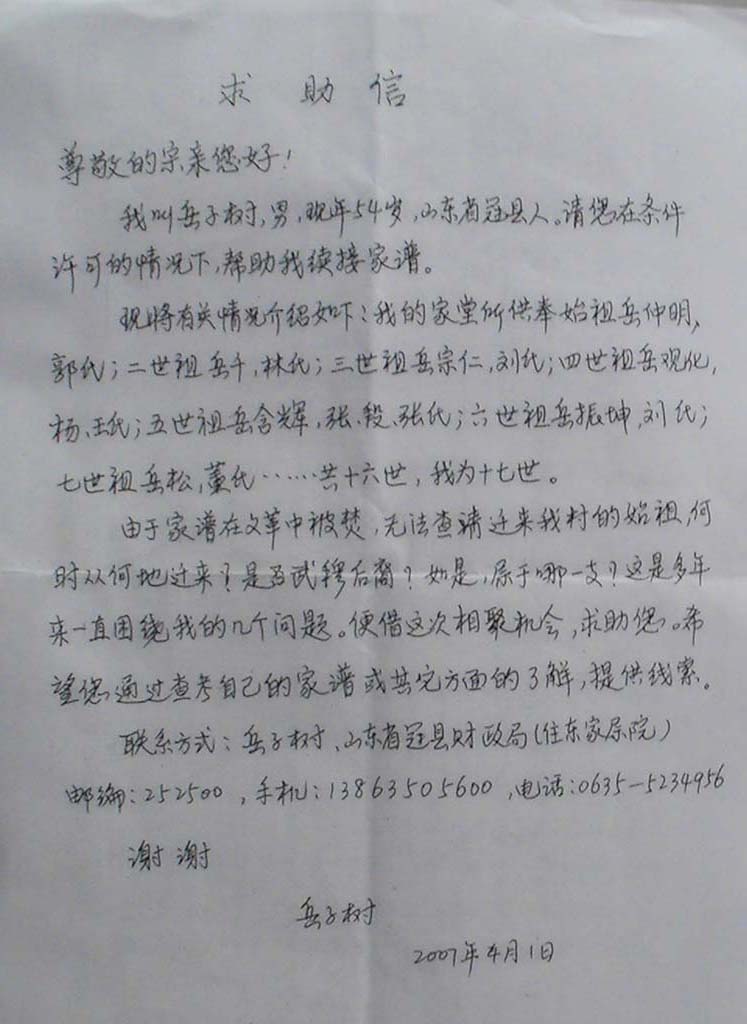 求助信
尊敬的宗亲您好！
我叫岳子树，男，现年54岁，山东省冠县人。请您在条件
许可的情况下，帮助我续接家谱。
现将有关情况介绍如下：我的家堂所供奉始祖岳仲明、
郭氏；二世祖岳千，林氏；三世祖岳宗仁，刘氏；四世祖岳观化，
杨、王氏；五世祖岳含辉，张、段、张氏；六世祖岳振坤，刘氏；
七世祖岳松，董氏……共十六世，我为十七世。
由于家谱在文革中被焚，无法查请迁来我村的始祖，何
时从何地迁来？是否武穆后裔？如是，属于哪一支？这是多年
来一直困绕我的几个问题。便借这次相聚机会，求助您。希
望您通过查考自己的家谱或其它方面的了解，提供线索。
联系方式：岳子树、山东省冠县财政局（住东家属院）
邮编：252500，手机：13863505600，电话：0635—5234956
谢谢
岳子树
2007年4月1日